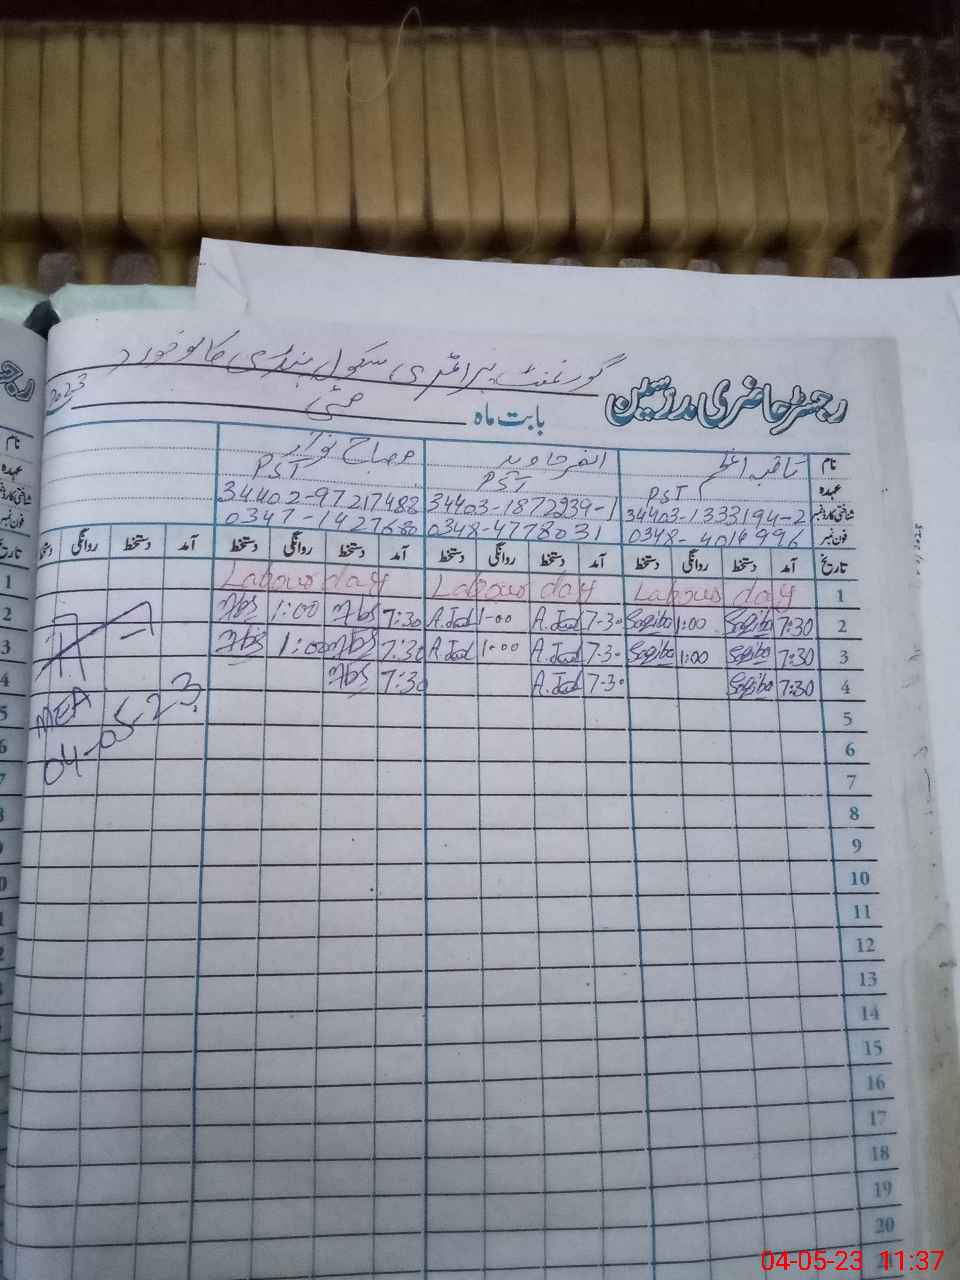 گورنمنٹ پرائمری سکول
رجسٹر حاضری مدرسین
بابت ماہ مئی 2023
نام ثاقبہ اعظم مصباح نواز
عہدہ PST PST PST
شناختی کارڈ نمبر 34403-1333194-2 34403-1872939-1 34402-97217488
فون نمبر 0348-4014996 0348-4778031 0347-1427680
تاریخ آمد دستخط روانگی دستخط آمد دستخط روانگی دستخط آمد دستخط روانگی دستخط آمد دستخط روانگی
1 Labour day Labour day Labour day
2 7:30 1:00 7-30 A.Jad 1-00 A.Jad 7:30 1:00
3 7:30 1:00 7-30 A.Jad 1-00 A.Jad 7:30 1:00
4 7:30 7-30 A.Jad 7:30
MEA
04-05-23
5
6
7
8
9
10
11
12
13
14
15
16
17
18
19
20
04-05-23 11:37